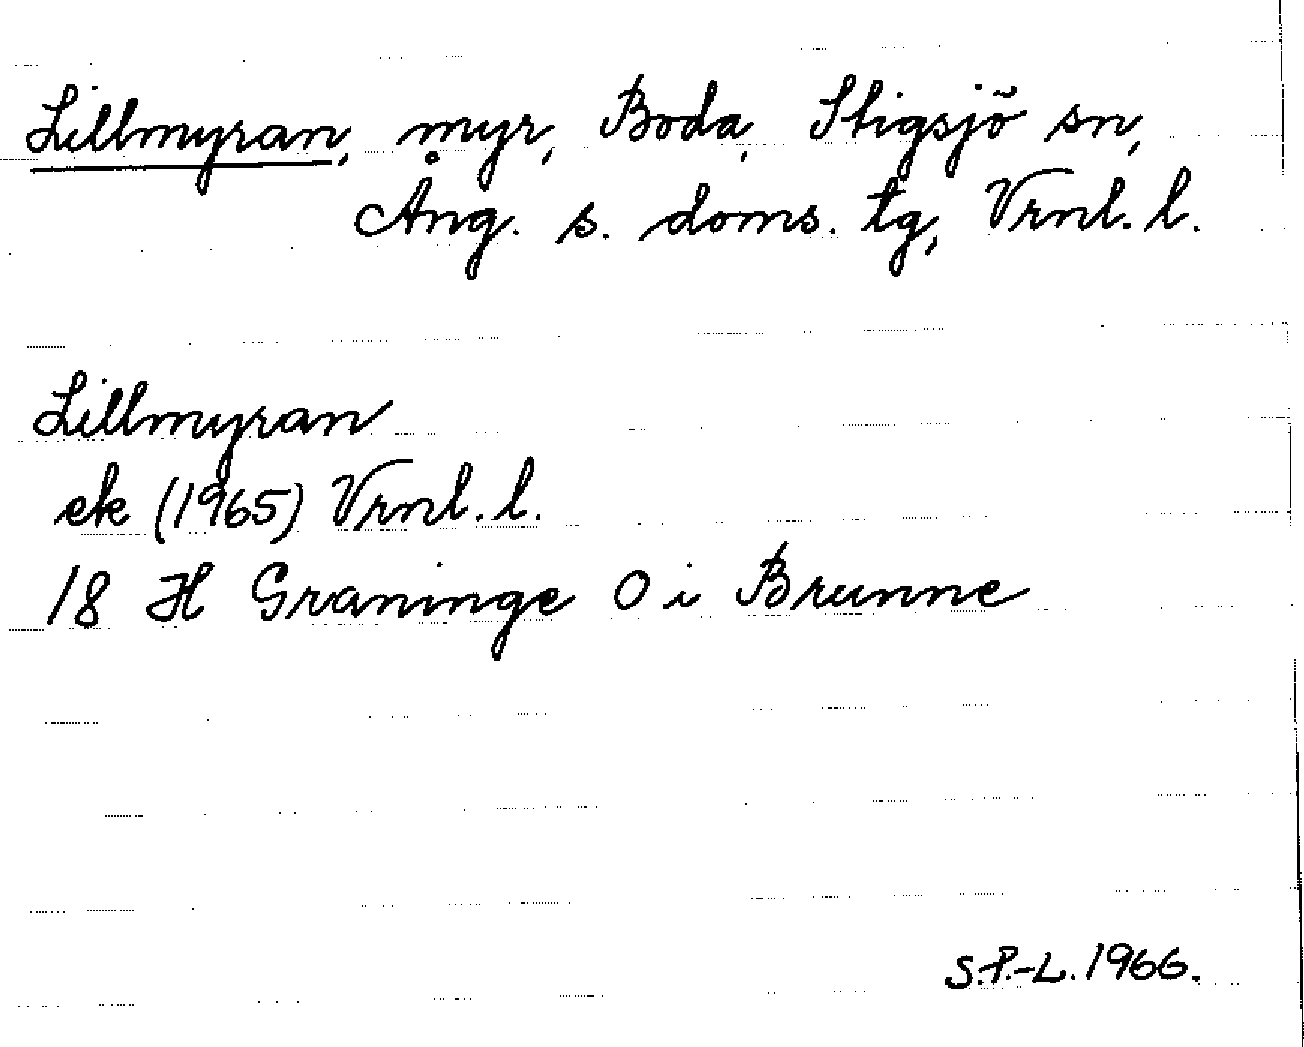 Lillmyran, myr, Boda, Stigsjö sn,
Ång. s. doms. tg, Vrnl. l.
Lillmyran
ek (1965) Vrnl. l.
18 H Graninge O i Brunne
S.P.-L. 1966.